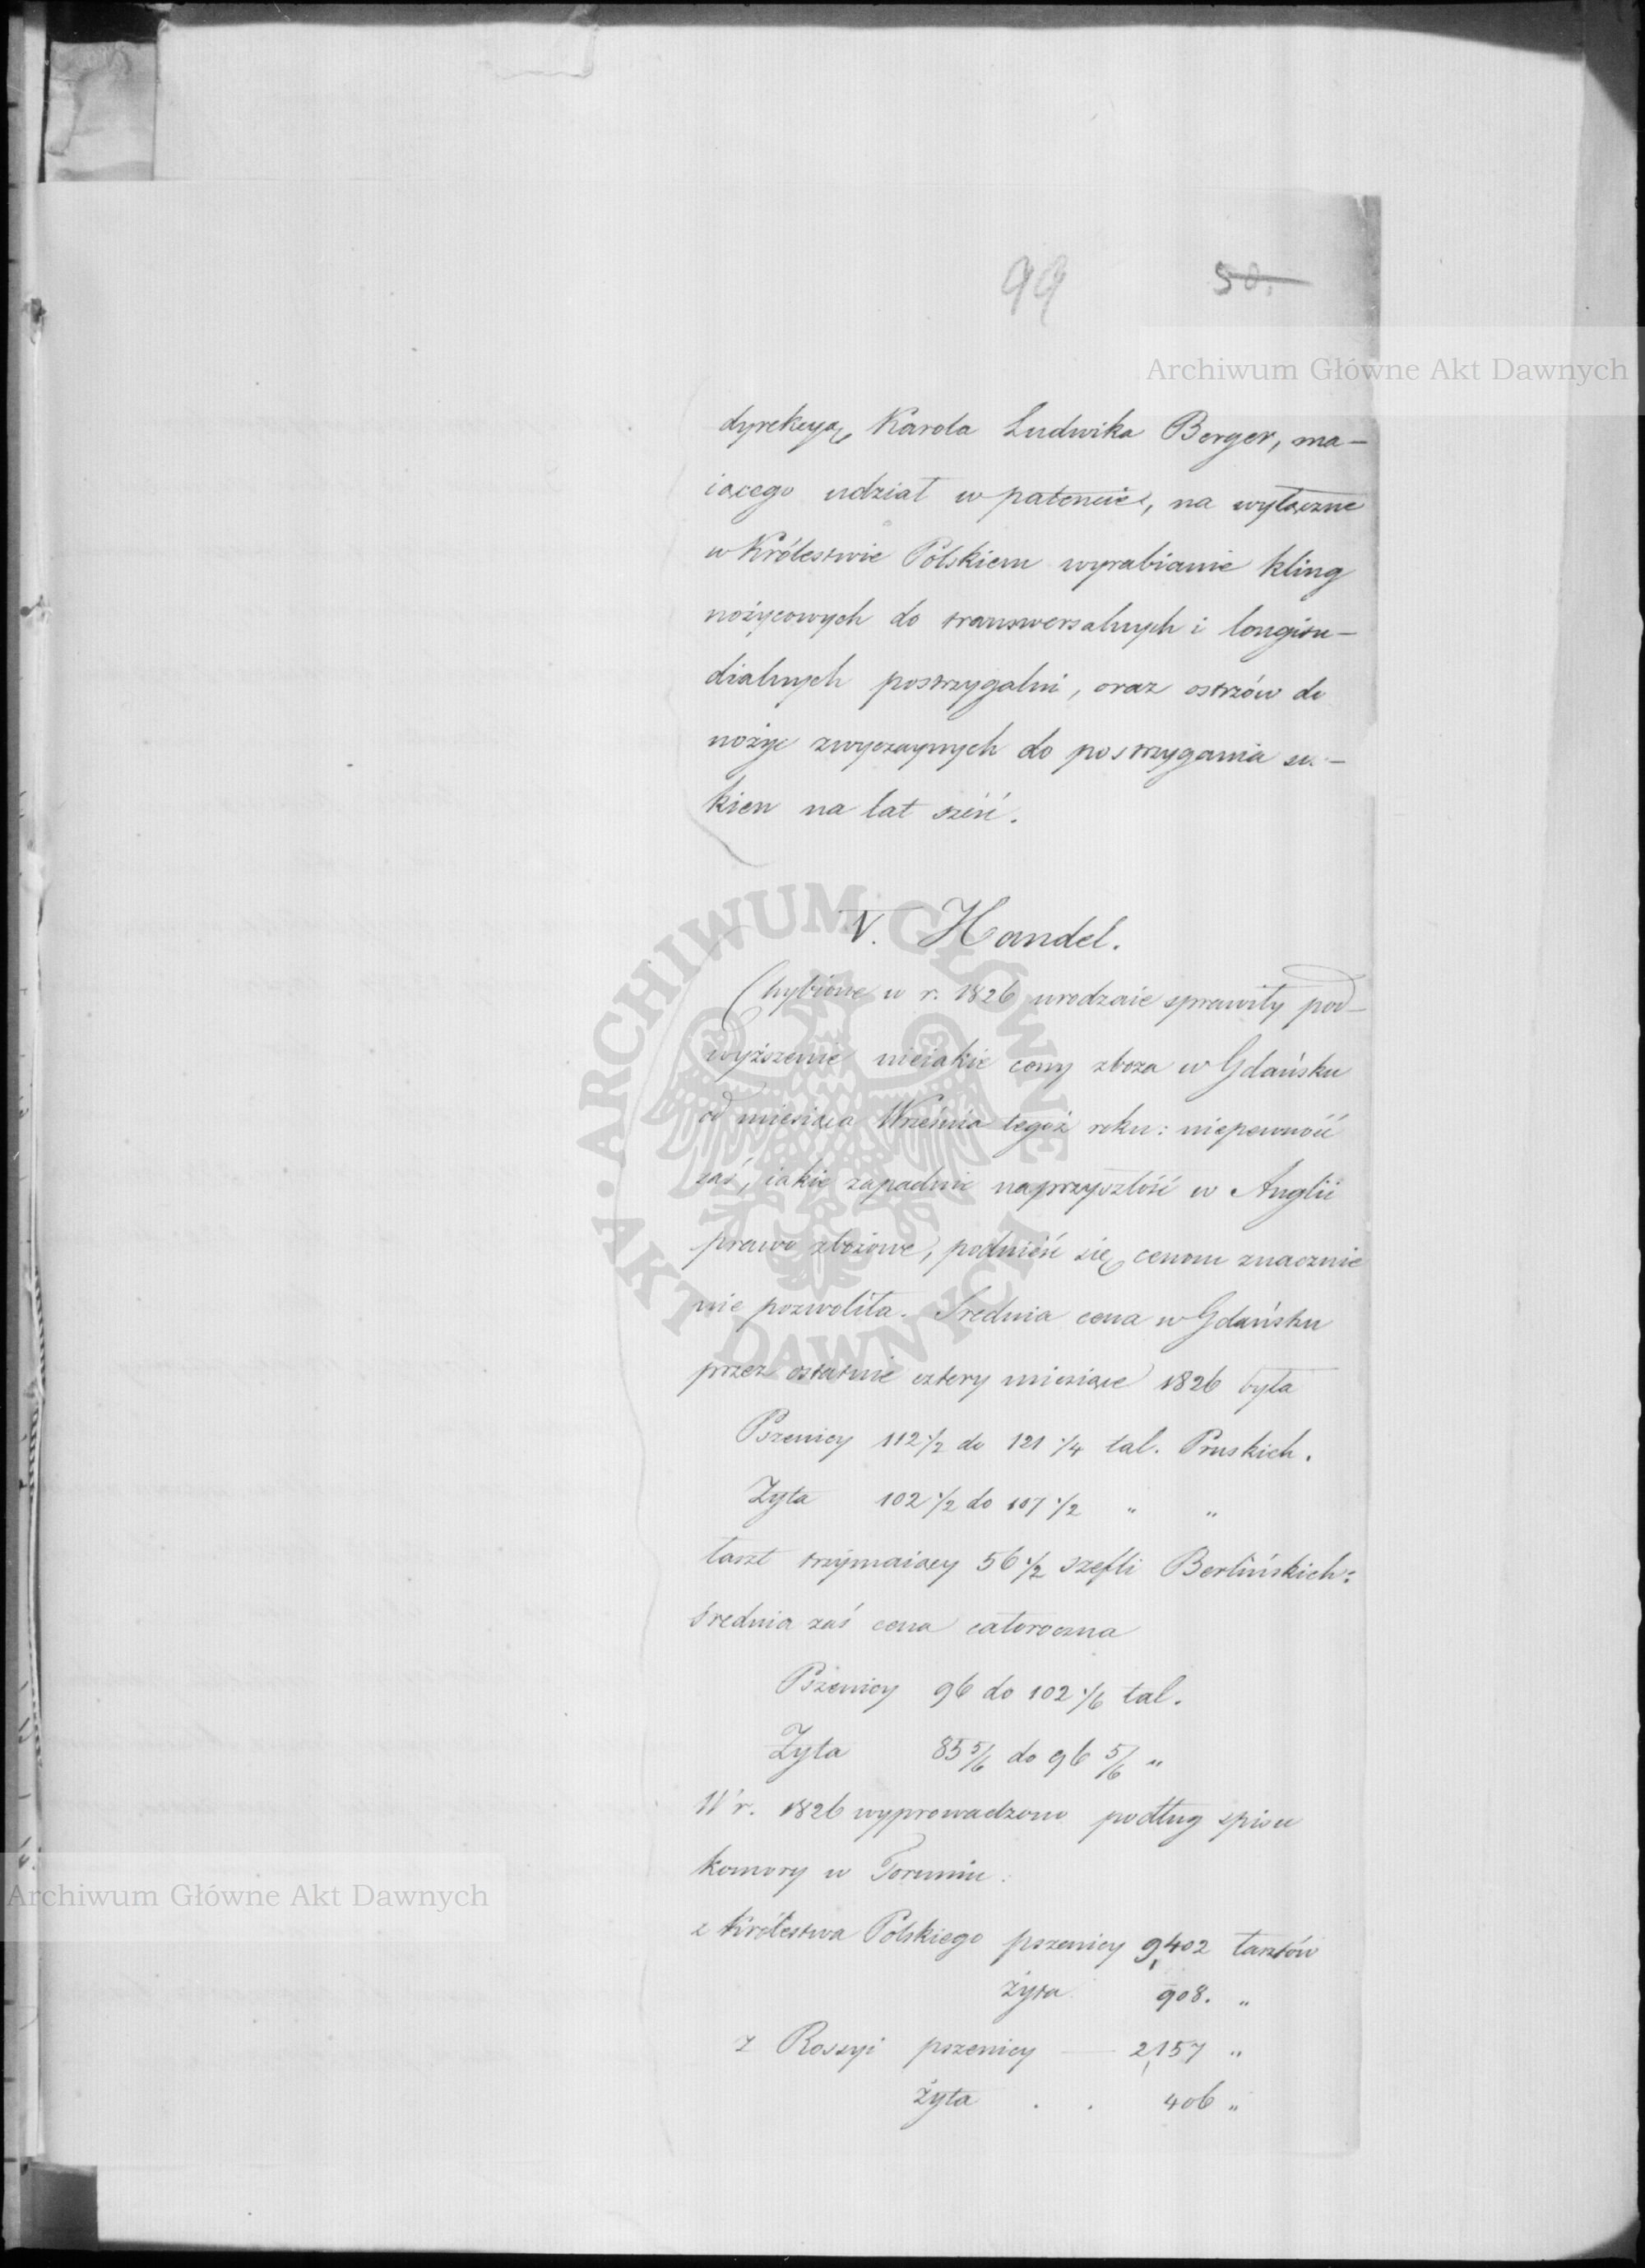 99 50.
Archiwum Główne Akt Dawnych
dyrekcyą Karola Ludwika Berger, ma-
iącego udział w patencie, na wyłączne
w Królestwie Polskiem wyrabianie kling
nożycowych do transwersalnych i longitu-
dialnych postrzygalni, oraz ostrzów do
nożyc zwyczaynych do postrzygania su-
kien na lat sześć.
V. Handel.
Chybione w r. 1826 urodzaie sprawiły pod-
wyższenie nieiakie ceny zboża w Gdańsku
od miesiąca Września tegoż roku: niepewność
zaś, iakie zapadnie na przyszłość w Anglii
prawo zbożowe, podnieść się cenom znacznie
nie pozwoliła. Srednia cena w Gdańsku
przez ostatnie cztery miesiące 1826 była
Pszenicy 112 1/2 do 121 1/4 tal. Pruskich.
Żyta 102 1/2 do 107 1/2 " "
łaszt trzymaiący 56 1/2 szefli Berlińskich:
średnia zaś cena całoroczna
Pszenicy 96 do 102 1/6 tal.
Żyta 85 5/6 do 96 5/6 "
W r. 1826 wyprowadzono podług spisu
komory w Toruniu:
z Królestwa Polskiego pszenicy 9,402 łasztów
żyta 908. "
z Rossyi pszenicy — 2,157 "
żyta . . 406 "
ARCHIWUM GŁÓWNE AKT DAWNYCH
Archiwum Główne Akt Dawnych